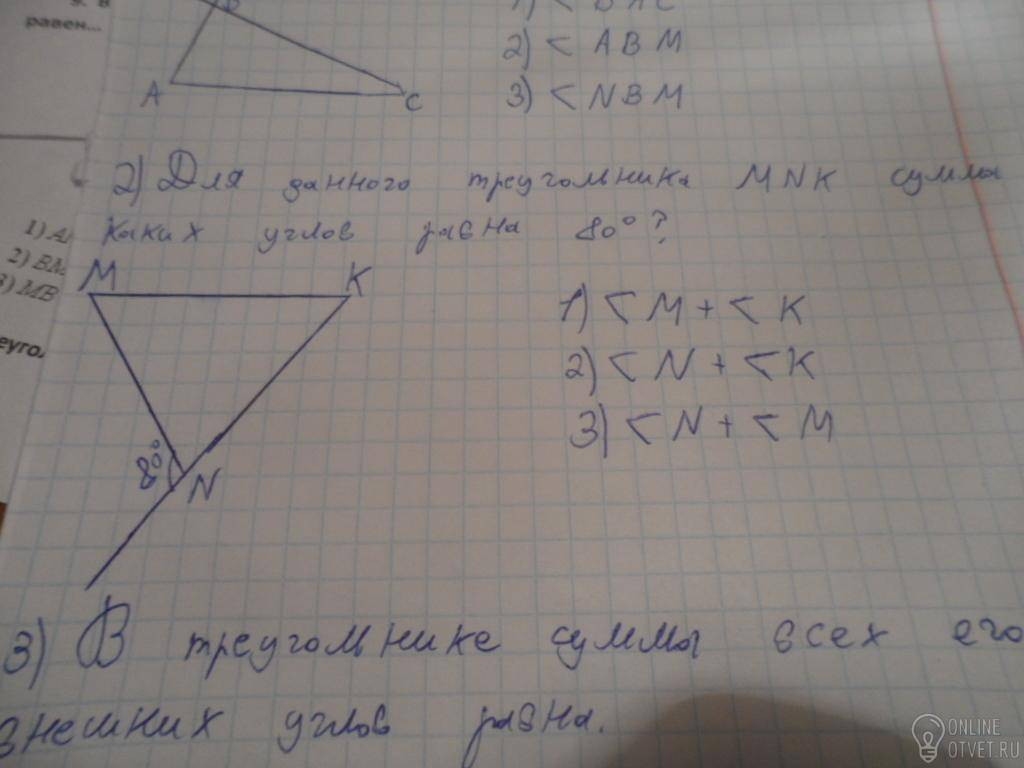 равен...
A
C
2) < A B M
3) < N B M
2) Для данного треугольника MNK суммы
каких углов равна 80°?
2) BM
3) MB
M
K
1) < M + < K
2) < N + < K
3) < N + < M
80°
N
3) В треугольнике суммы всех его
внешних углов равна.
ONLINE
OTVET.RU